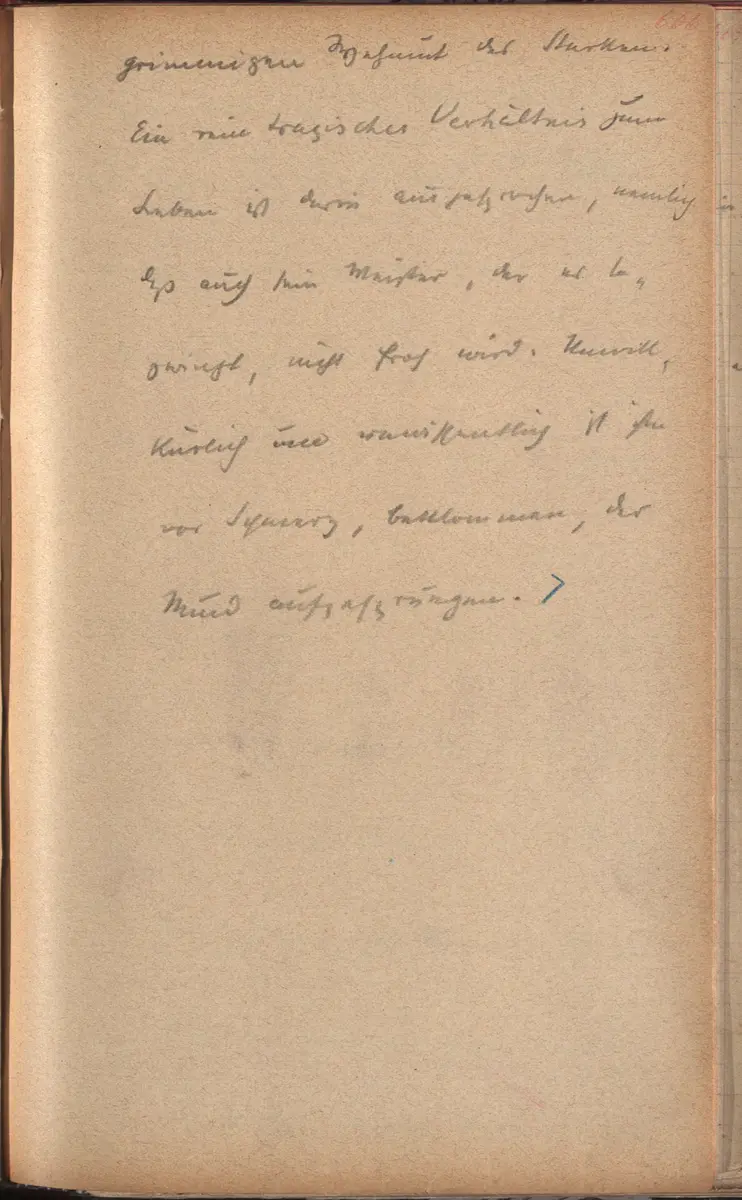 grimmigen Wehmut des Starken.
Ein rein tragisches Verhältnis zum
Leben ist darin ausgesprochen, nemlich
daß auch sein Meister, der es be„
zwingt, nicht froh wird. Unwill„
kürlich und unwissentlich ist ihm
vor Schmerz, beklommen, der
Mund aufgesprungen. >